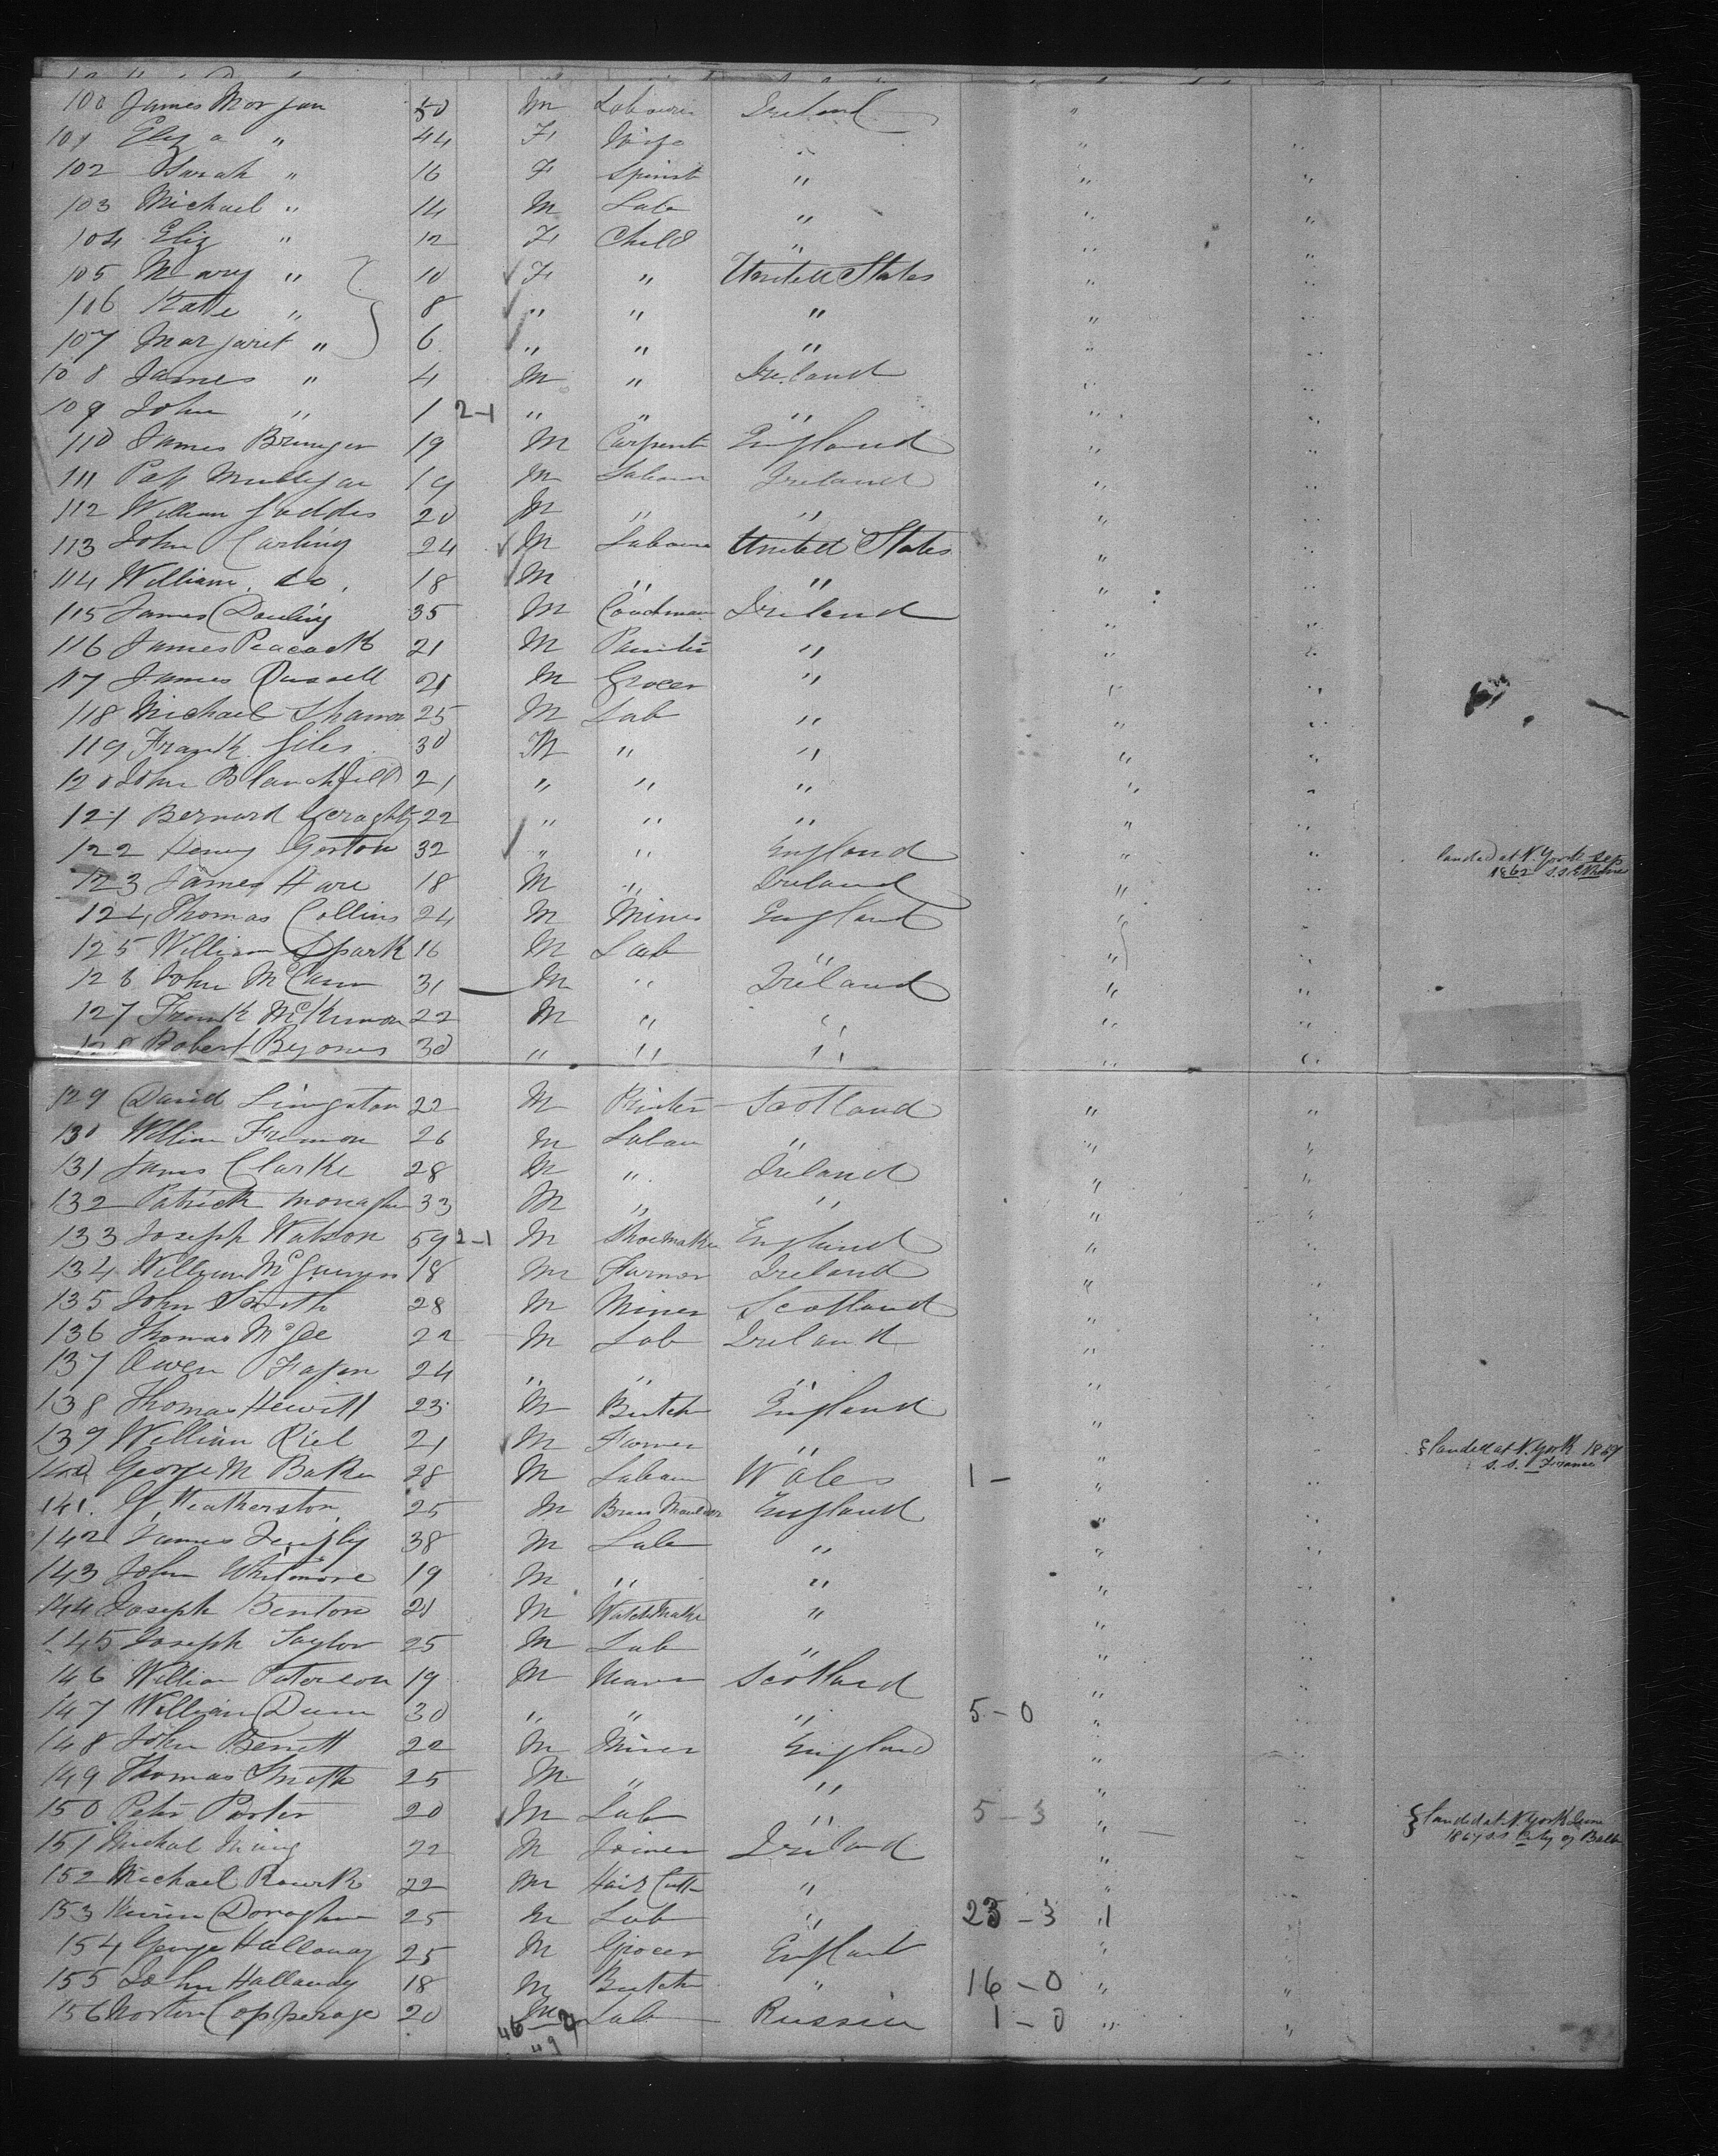 100 James Morgan 50 M Laboure Ireland "
101 Eliz a " 44 F Wife " " "
102 Sarah " 16 F Spinst " " "
103 Michael " 14 M Lab " " "
104 Eliz " 12 F Child " " "
105 Mary " 10 F " United States " "
106 Kate " 8 " " " " "
107 Margaret " 6 " " " " "
108 James " 4 M " Ireland " "
109 John " 1 2-1 " " " " "
110 James 19 M Carpent England " "
111 Pat Mulligan 19 M Labour Ireland " "
112 William Gaddis 20 M " " " "
113 John Carling 24 M Laboure United States " "
114 William do. 18 M " " " "
115 James Dowling 35 M Coachman Ireland " "
116 James Peacock 21 M Painter " " "
117 James Russell 21 M Grocer " " "
118 Michael Shannon 25 M Lab " " "
119 Frank Giles 30 M " " " "
120 John Blanchfield 21 " " " " "
121 Bernard Geraghty 22 " " " " "
122 Henry Gorton 32 " " England " " landed at N. York Sep
1862 S.S.
123 James Hare 18 M " Ireland " "
124 Thomas Collins 24 M Miner England " "
125 William Spark 16 M Lab " " "
126 John McCann 31 M " Ireland " "
127 Frank McKinnon 22 M " " " "
128 Robert 30 " " " " "
129 David Livingston 22 M Printer Scotland " "
130 William 26 M Labour " " "
131 James Clarke 28 M " Ireland " "
132 Patrick Monaghan 33 M " " " "
133 Joseph Watson 59 2-1 M Shoemaker England " "
134 William 18 M Farmer Ireland " "
135 John Smith 28 M Miner Scotland " "
136 Thomas McGee 22 M Lab Ireland " "
137 Owen Fagan 24 " " " " "
138 Thomas Hewitt 23 M Butch England " "
139 William Riel 21 M Farmer " " " landed at N. York 1869
S.S. France
140 George M Baker 28 M Labour Wales 1 - " "
141 G. Weatherston 25 M Brass Moulder England " "
142 James 38 M Lab " " "
143 John Whitmore 19 M " " " "
144 Joseph Benton 21 M Watch Maker " " "
145 Joseph Taylor 25 M Lab " " "
146 William Paterson 19 M Scotland " "
147 William Dunn 30 " " " 5-0 " "
148 John Bennett 22 M Miner England " "
149 Thomas Smith 25 M " " " "
150 Peter Porter 20 M Lab " 5-3 " " landed at N. York June
1867 S.S. City of Balt
151 Michal 22 M Joiner Ireland " "
152 Michael Rourk 22 M Hair Cutter " " "
153 Donaghue 25 M Lab " 23-3 " "
154 George Halloway 25 M Grocer England " "
155 John Halloway 18 M Butch " 16-0 " "
156 20 M Lab Russia 1-0 " "
46
49